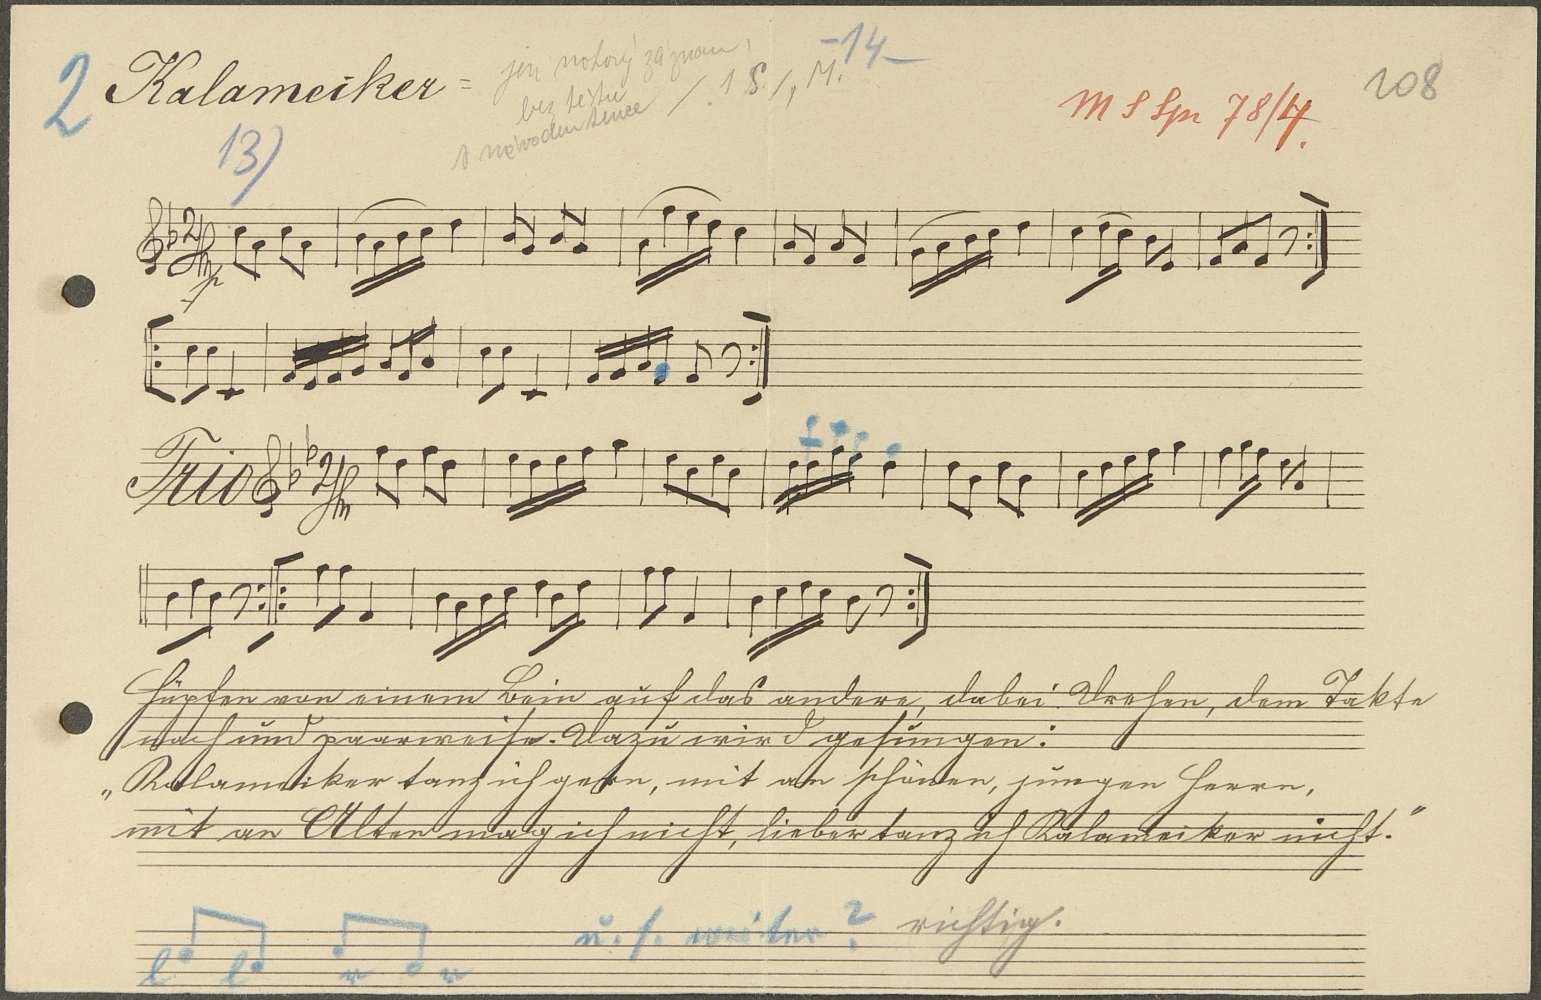 2 Kalameiker =
jen notový záznam,
bez textu
/. 1 S./, M. -14-
M S Spr 78/4.
108
13)
p
Trio
Hüpfen von einem Bein auf das andere, dabei Drehen, dem Takte
nach und paarweise. Dazu wird gesungen:
„Kalameiker tanz ich gern, mit an schönen, jungen Herrn,
mit an Alten mag ich nicht, lieber tanz ich Kalameiker nicht.“
u. s. weiter? richtig.
l l r r